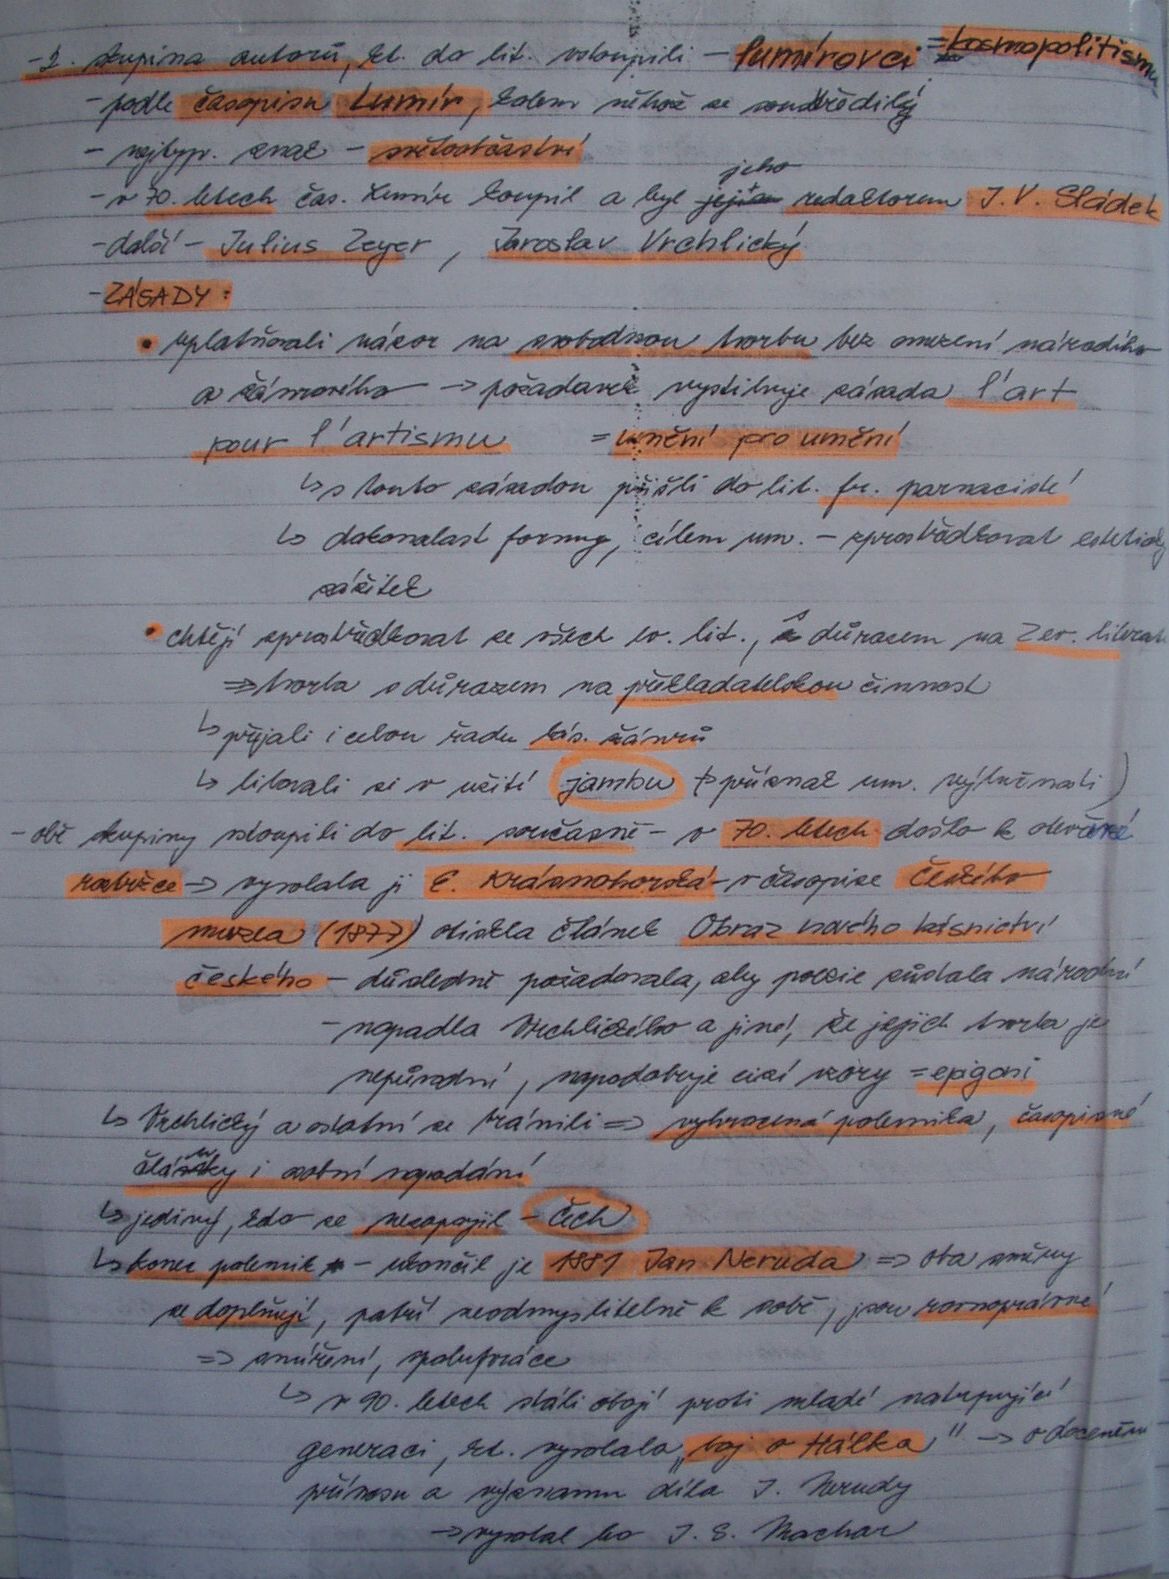 -2. skupina autorů, kt. do lit. vstoupili - lumírovci = kosmopolitismu
- podle časopisu Lumír, kolem něhož se soustředily
- nejtyp. znak - světoobčanství
- v 70. letech čas. Lumír koupil a byl jeho redaktorem J. V. Sládek
- další - Julius Zeyer, Jaroslav Vrchlický
- ZÁSADY:
• uplatňovali názor na svobodnou tvorbu bez omezení národního
a žánrového → požadavek vystihuje zásada l'art
pour l'artismu = umění pro umění
↳ s touto zásadou přišli do lit. fr. parnacisté
↳ dokonalost formy, cílem um. - zprostředkovat estetický
zážitek
• chtějí zprostředkovat ze všech sv. lit., s důrazem na zev. literat
⇒ tvorba s důrazem na překladatelskou činnost
↳ přijali i celou řadu bás. žánrů
↳ libovali si v užití jambu (příznak um. výlučnosti)
- obě skupiny vstoupili do lit. současně - v 70. letech došlo k otevřené
roztržce → vyvolala ji E. Krásnohorská - v časopise Českého
muzea (1877) otiskla článek Obraz nového básnictví
českého - důsledně požadovala, aby poezie zůstala národní
- napadla Vrchlického a jiné, že jejich tvorba je
nepůvodní, napodobuje cizí vzory = epigoni
↳ Vrchlický a ostatní se bránili ⇒ vyhrocená polemika, časopisné
články i osobní napadání
↳ jediný, kdo se nezapojil - Čech
↳ konec polemik - ukončil je 1881 Jan Neruda ⇒ oba směry
se doplňují, patří neodmyslitelně k sobě, jsou rovnoprávné
⇒ smíření, spolupráce
↳ v 90. letech stáli obojí proti mladé nastupující
generaci, kt. vyvolala „boj o Hálka" → o docenění
přínosu a významu díla J. Nerudy
→ vyvolal ho J. S. Machar